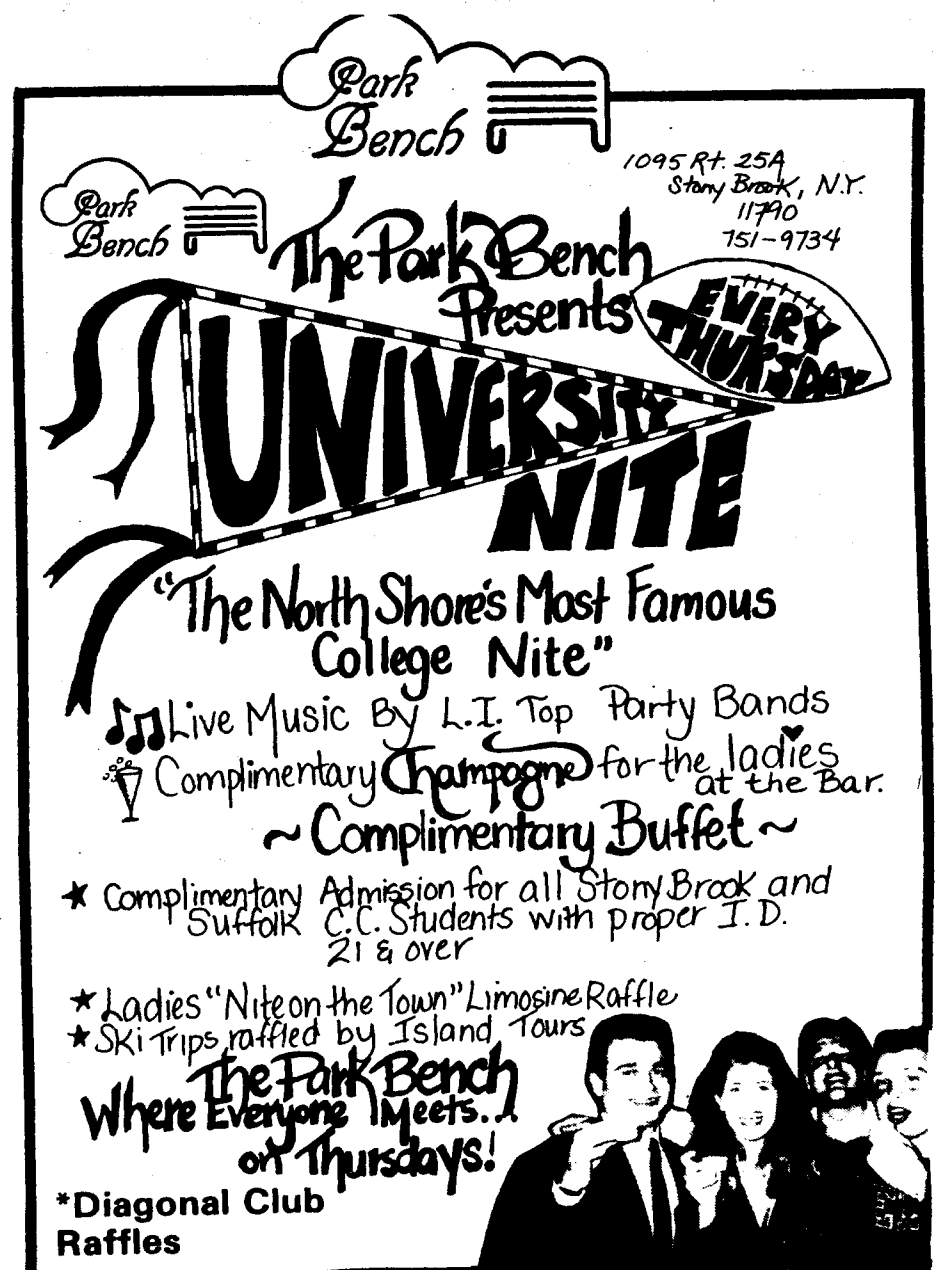 Park
Bench
1095 Rt. 25A
Stony Brook, N.Y.
11790
751-9734
Park
Bench
The Park Bench
Presents
EVERY
THURSDAY
UNIVERSITY
NITE
"The North Shore's Most Famous
College Nite"
Live Music By L.I. Top Party Bands
Complimentary Champagne for the ladies
at the Bar.
~ Complimentary Buffet ~
★ Complimentary Admission for all Stony Brook and
Suffolk C.C. Students with proper I.D.
21 & over
★ Ladies "Nite on the Town" Limosine Raffle
★ Ski Trips raffled by Island Tours
The Park Bench
Where Everyone Meets...
on Thursdays!
*Diagonal Club
Raffles